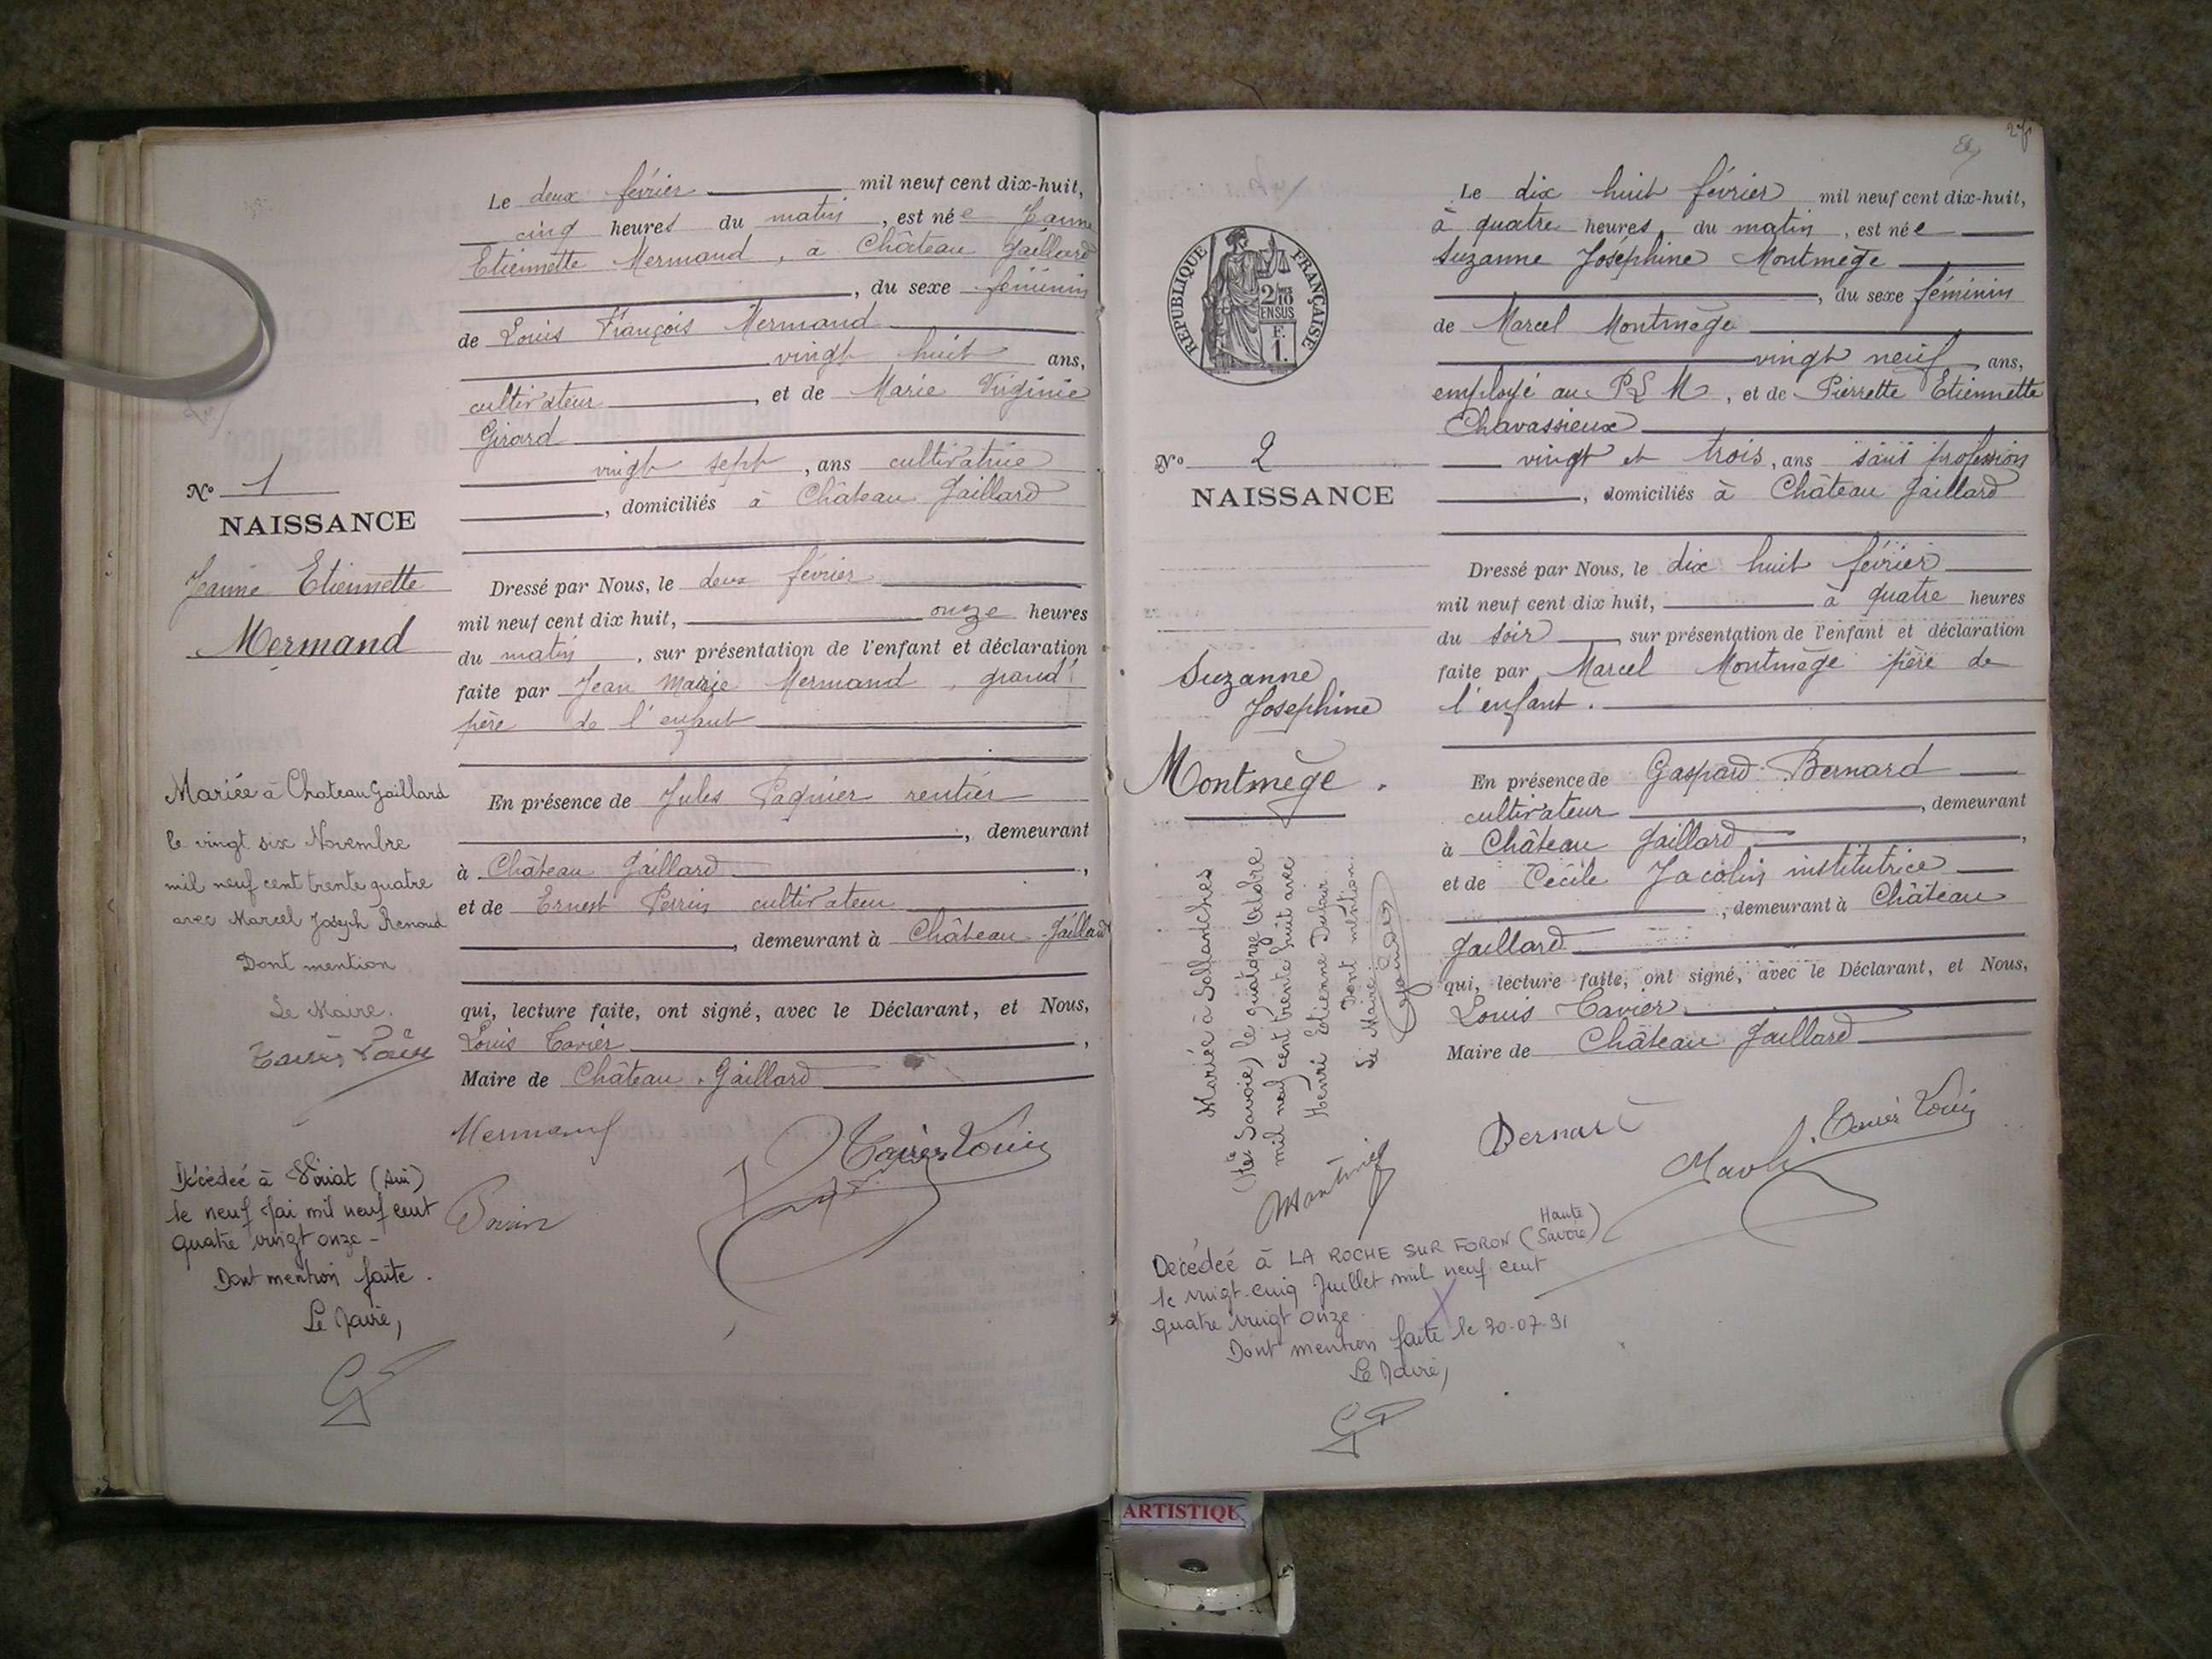 Le deux février mil neuf cent dix-huit,
cinq heures du matin, est née Jeanne
Etiennette Mermand, a Château Gaillard
, du sexe féminin
de Louis François Mermand
vingt huit ans,
cultivateur, et de Marie Virginie
Girard
vingt sept, ans cultivatrice
, domiciliés à Château Gaillard
Dressé par Nous, le deux février
mil neuf cent dix huit, onze heures
du matin, sur présentation de l'enfant et déclaration
faite par Jean Marie Mermand, grand
père de l'enfant
En présence de Jules Paquier rentier
, demeurant
à Château Gaillard,
et de Ernest Perrin cultivateur
, demeurant à Château-Gaillard
qui, lecture faite, ont signé, avec le Déclarant, et Nous,
Louis Tavier,
Maire de Château-Gaillard
Mermand
Tavier Louis
Perrin
N° 1
NAISSANCE
Jeanne Etiennette
Mermand
Mariée à Chateau Gaillard
le vingt six Novembre
mil neuf cent trente quatre
avec Marcel Joseph Renoud
Dont mention
Le Maire.
Décédée à Viriat (Ain)
le neuf Mai mil neuf cent
quatre vingt onze -
Dont mention faite.
Le Maire,
27
RÉPUBLIQUE FRANÇAISE
2/10 MES
EN SUS
F.
1.
Le dix huit février mil neuf cent dix-huit,
à quatre heures du matin, est née
Suzanne Joséphine Montmège
, du sexe féminin
de Marcel Montmège
vingt neuf ans,
employé au P L M, et de Pierrette Etiennette
Chavassieux
vingt et trois, ans sans profession
, domiciliés à Château Gaillard
Dressé par Nous, le dix huit février
mil neuf cent dix huit, à quatre heures
du soir, sur présentation de l'enfant et déclaration
faite par Marcel Montmège père de
l'enfant.
En présence de Gaspard Bernard
cultivateur, demeurant
à Château Gaillard,
et de Cécile Jacolin institutrice
, demeurant à Château
Gaillard
qui, lecture faite, ont signé, avec le Déclarant, et Nous,
Louis Tavier
Maire de Château Gaillard
Bernard
Tavier Louis
Montmège
N° 2
NAISSANCE
Suzanne
Josephine
Montmège.
Mariée à Sallanches
(Hte Savoie) le quatorze Octobre
mil neuf cent trente huit avec
Henri Etienne
Dont mention
Le Maire
Décédée à LA ROCHE SUR FORON (Haute Savoie)
le vingt-cinq Juillet mil neuf cent
quatre vingt onze
Dont mention faite le 30.07.91
Le Maire,
ARTISTIQUE